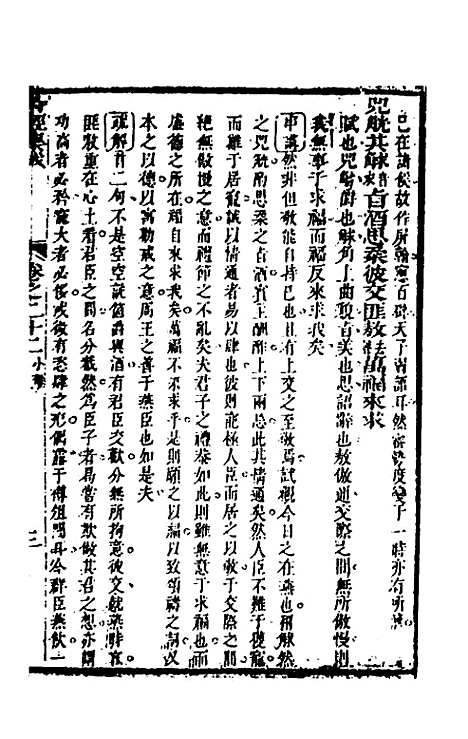 兕觥其觩旨酒思柔彼交匪敖萬福來求
賦也兕觥爵也觩角上曲貌旨美也思語辭也敖傲通交際之間無所傲慢則
我無事于求福而福反來求我矣
申講然非但敬能自持已也且有上交之至敬焉試觀今日之在燕也觩然
之兕觥酌思柔之旨酒賓主酬酢上下兩忘此其情通矣然人臣不難于獲寵
而難于居寵誠以情通者易以肆也彼則寵極人臣而居之以敬于交際之間
絕無傲慢之意而禮節之不亂矣夫君子之禮恭如此則雖無意于求福也而
盛德之所在福自來求我矣萬福不來求乎是則頌之以福以致頌禱之詞又
本之以德以寓勸戒之意周王之善于燕臣也如是夫
疏解首二句不是空空說個爵與酒有君臣交歡分無所拘意彼交就燕時言
匪敖重在心上看君臣之間名分截然為臣子者曷嘗有欺傲其君之想亦謂
功高者必矜寵大者必侈或後有恣肆之形偶露于樽俎間耳今群臣燕飲一
卷之二十二 小雅
三